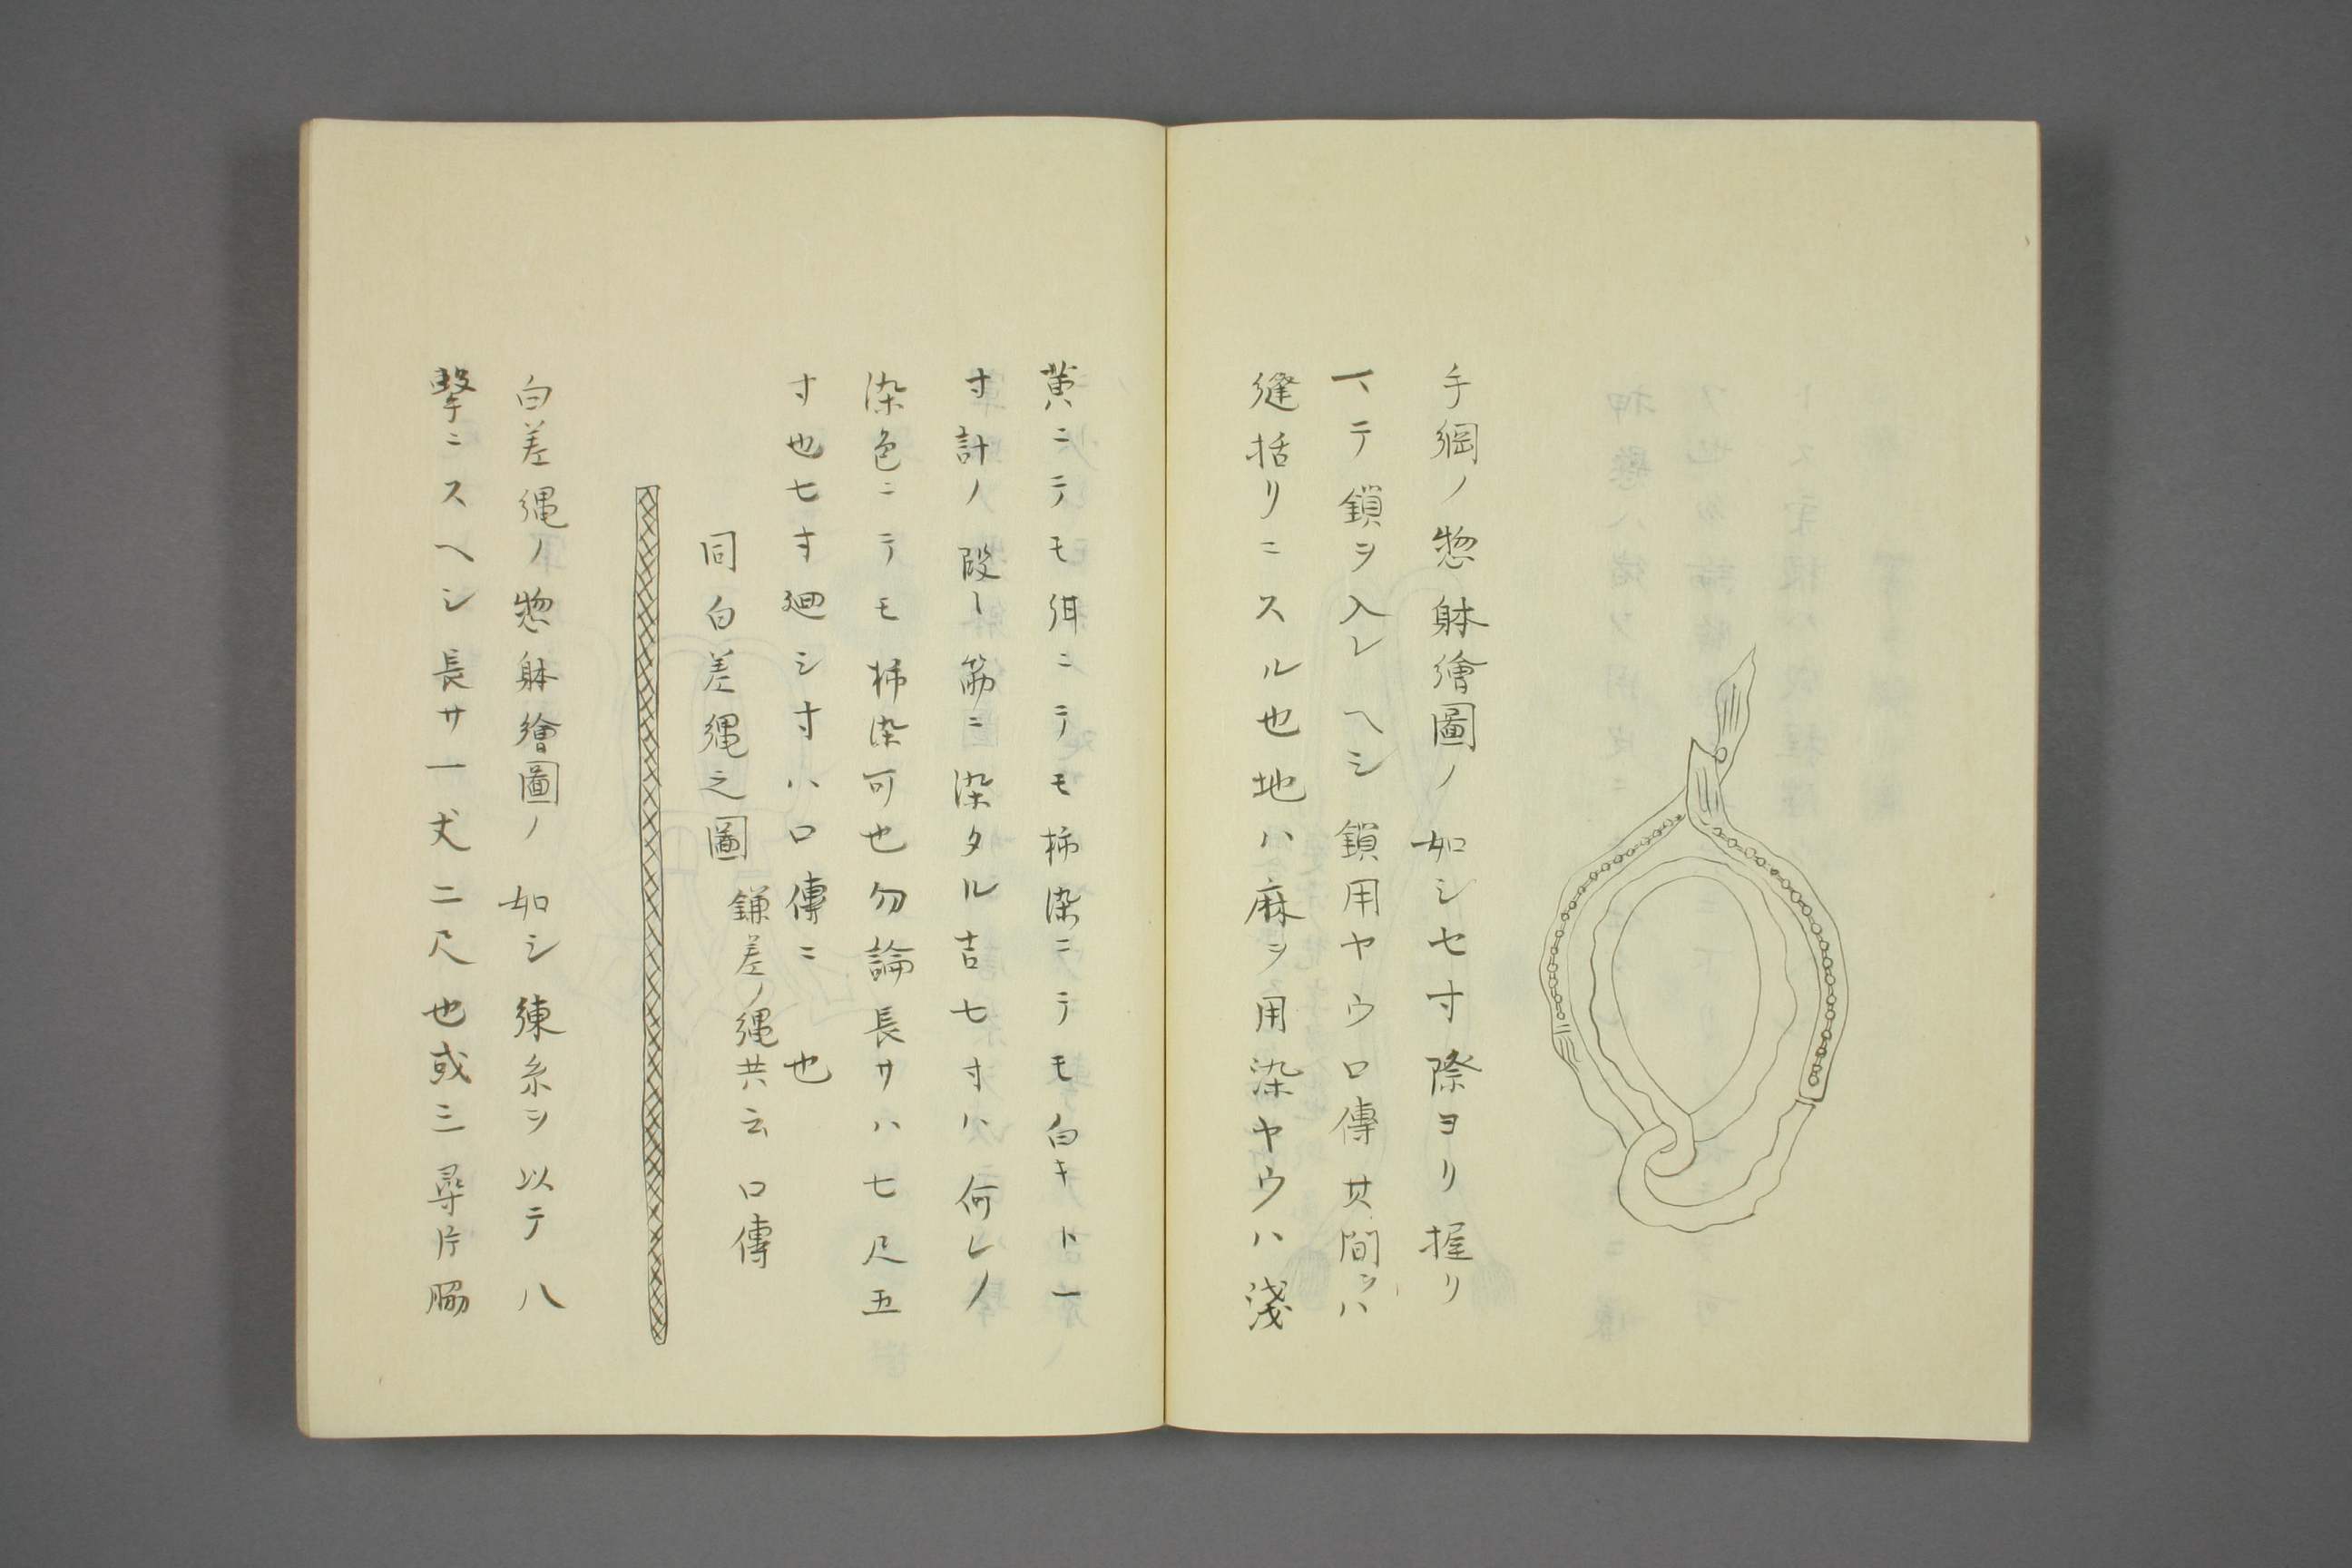 手綱ノ惣躰繪圖ノ如シセ寸際ヨリ握リ
テ鎖ヲ入レヘシ鎖用ヤウ口傳其間ヲハ
縫括リニスル也地ハ麻ヲ用染ヤウハ淺
黄ニテモ絹ニテモ柿染ニテモ白キト一
寸計ノ段〻筋ニ染タル吉七寸ハ何レノ
染色ニテモ柿染可也勿論長サハ七尺五
寸也七寸廻シ寸ハ口傳ニ也
同白差縄之圖
鎌差ノ縄共云口傳
白差縄ノ惣躰繪圖ノ如シ練糸ヲ以テ八
撃ニスヘシ長サ一丈二尺也或三尋片脇